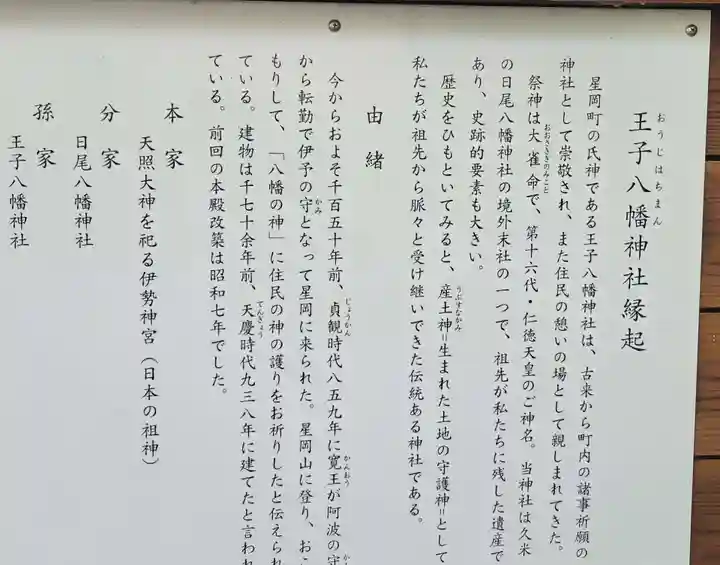 王子八幡神社縁起
おうじはちまん
星岡町の氏神である王子八幡神社は、古来から町内の諸事祈願の
神社として崇敬され、また住民の憩いの場として親しまれてきた。
祭神は大雀命で、第十六代・仁徳天皇のご神名。当神社は久米
おおさざきのみこと
の日尾八幡神社の境外末社の一つで、祖先が私たちに残した遺産で
あり、史跡的要素も大きい。
歴史をひもといてみると、産土神=生まれた土地の守護神=として
うぶすなかみ
私たちが祖先から脈々と受け継いできた伝統ある神社である。
由緒
今からおよそ千百五十年前、貞観時代八五九年に寛王が阿波の守
じょうかん
かんおう
から転勤で伊予の守となって星岡に来られた。星岡山に登り、おこ
かみ
もりして、「八幡の神」に住民の神の護りをお祈りしたと伝えられ
ている。建物は千七十余年前、天慶時代九三八年に建てたと言われ
てんぎょう
ている。前回の本殿改築は昭和七年でした。
本家
天照大神を祀る伊勢神宮(日本の祖神)
分家
日尾八幡神社
孫家
王子八幡神社